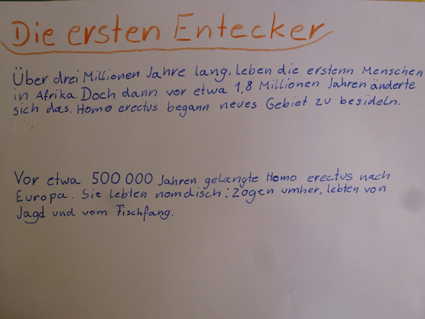 Die ersten Entecker
Über drei Millionen Jahre lang, leben die erstenn Menschen
in Afrika. Doch dann vor etwa 1,8 Millionen Jahren änderte
sich das. Homo erectus begann neues Gebiet zu besideln.
Vor etwa 500 000 Jahren gelangte Homo erectus nach
Europa. Sie lebten nomdisch: Zogen umher, lebten von
Jagd und vom Fischfang.